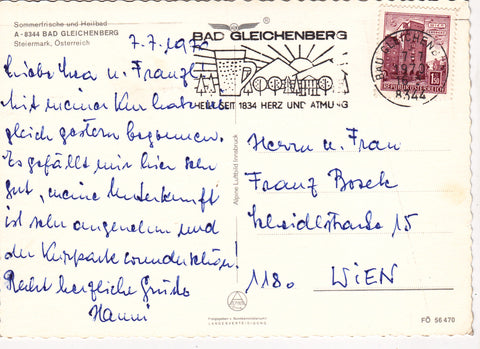 Sommerfrische und Heilbad
A - 8344 BAD GLEICHENBERG
Steiermark, Österreich
7.7.1972
Liebe Thea u. Franzl!
Mit meiner Kur habe ich
gleich gestern begonnen.
Es gefällt mir hier sehr
gut, meine Unterkunft
ist sehr angenehm und
der Kurpark wunderschön!
Recht herzliche Grüße
Hanni
BAD GLEICHENBERG
HEILT SEIT 1834 HERZ UND ATMUNG
BAD GLEICHENBERG
8344
REPUBLIK ÖSTERREICH
Alpine Luftbild Innsbruck
Herrn u. Frau
Franz Bosek
15
1180 WIEN
LANDESVERTEIDIGUNG
FÖ 56 470